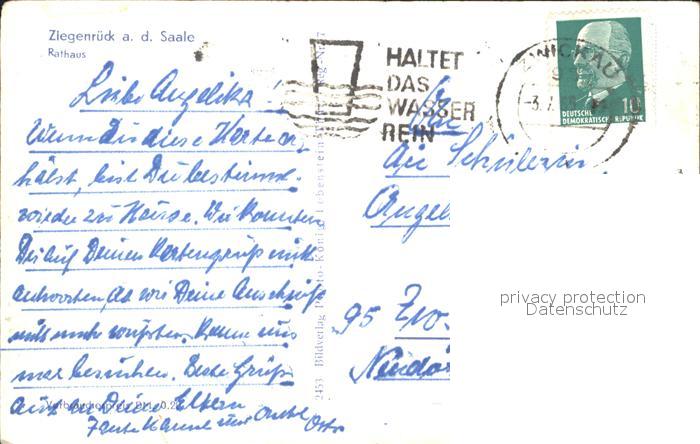 Ziegenrück a. d. Saale
Rathaus
Liebe Angelika!
Wenn Du diese Karte er-
hälst, bist Du bestimmt
wieder zu Hause. Wir konnten
Dir auf Deinen Kartengruß nicht
antworten, da wir Deine Anschrift
nicht mehr wußten. Komm uns
mal besuchen. Beste Grüße
auch an Deine Eltern
Tante Hanne und Onkel
Otto
HALTET
DAS
WASSER
REIN
ZWICKAU
10
DEUTSCHE
DEMOKRATISCHE REPUBLIK
An
die Schülerin
Angel
95 Zw
Neudö
privacy protection
Datenschutz
2453 Bildverlag